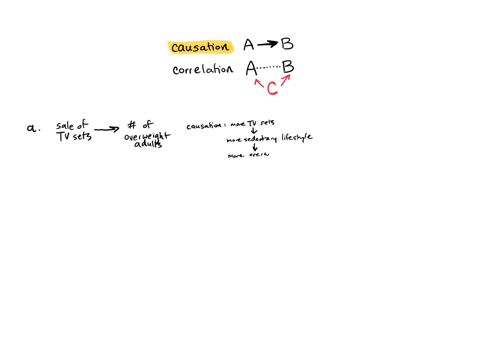 causation A → B
correlation A ........ B
C
a. sale of TV sets → # of overweight adults
causation: more TV sets
↓
more sedentary lifestyle
↓
more overw